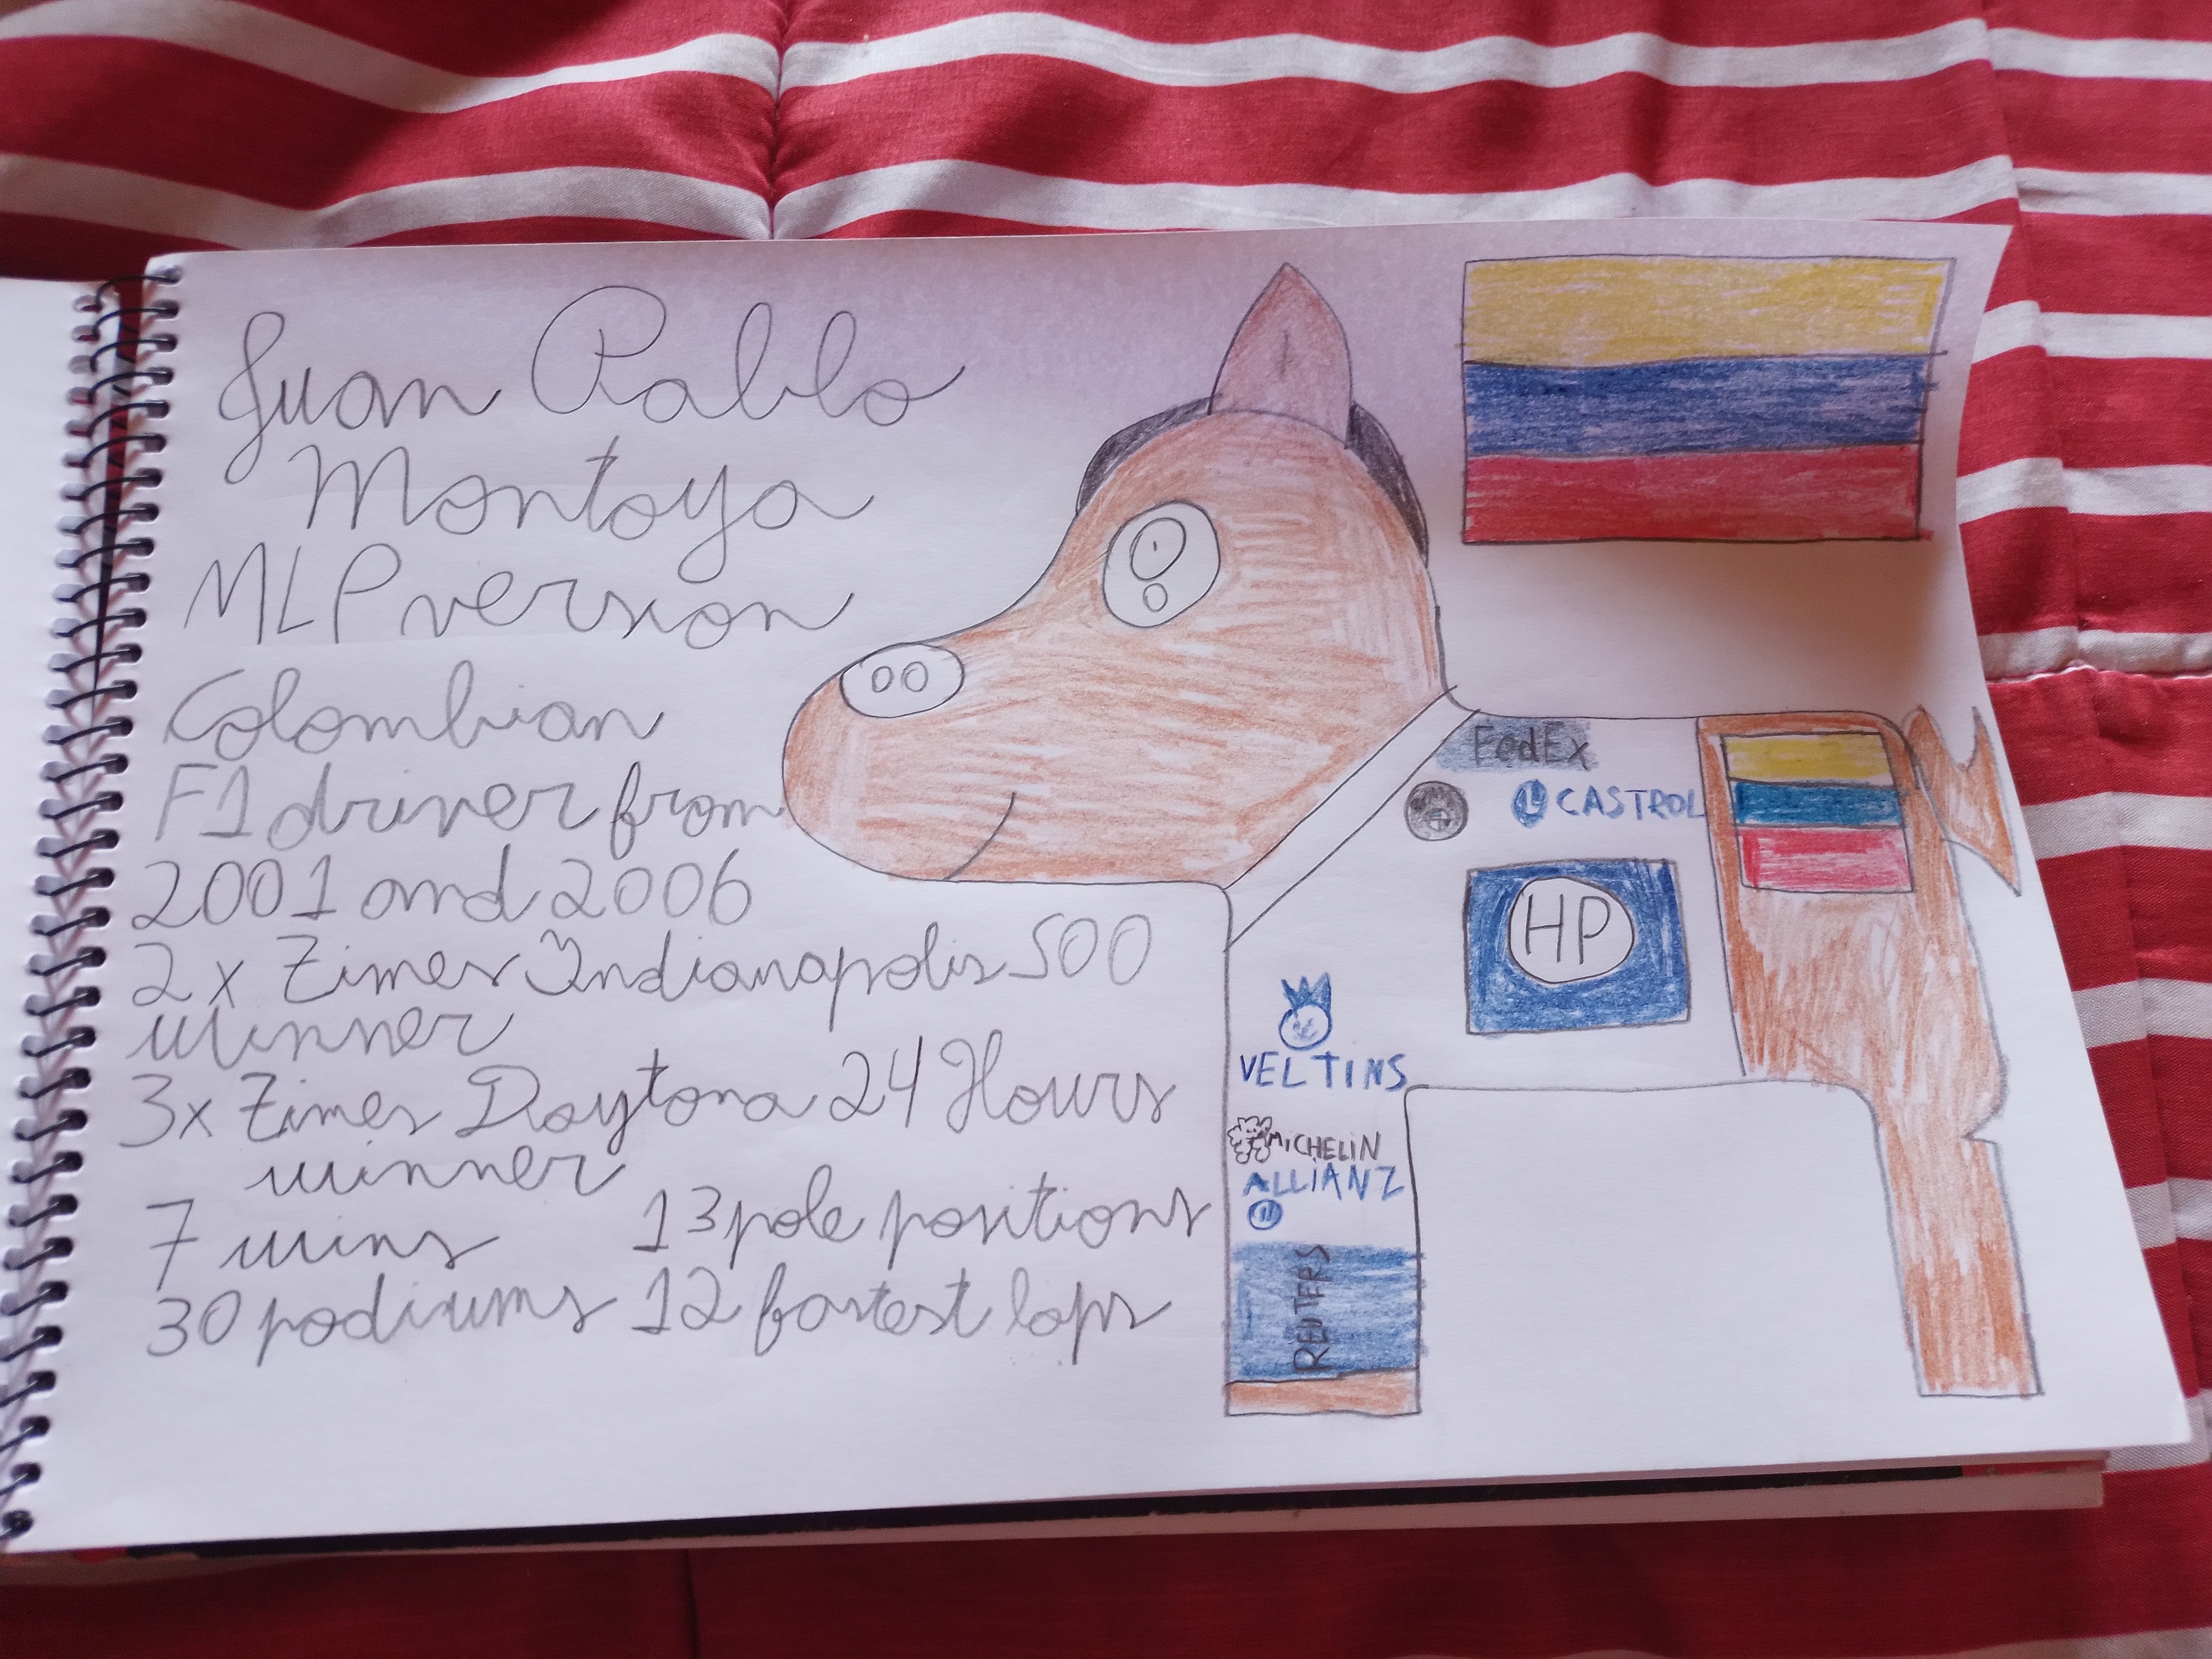 Juan Pablo
Montoya
MLP version
Colombian
F1 driver from
2001 and 2006
2x Times Indianapolis 500
winner
3x Times Daytona 24 Hours
winner
7 wins 13 pole positions
30 podiums 12 fastest laps
FedEx
CASTROL
HP
VELTINS
MICHELIN
ALLIANZ
REUTERS